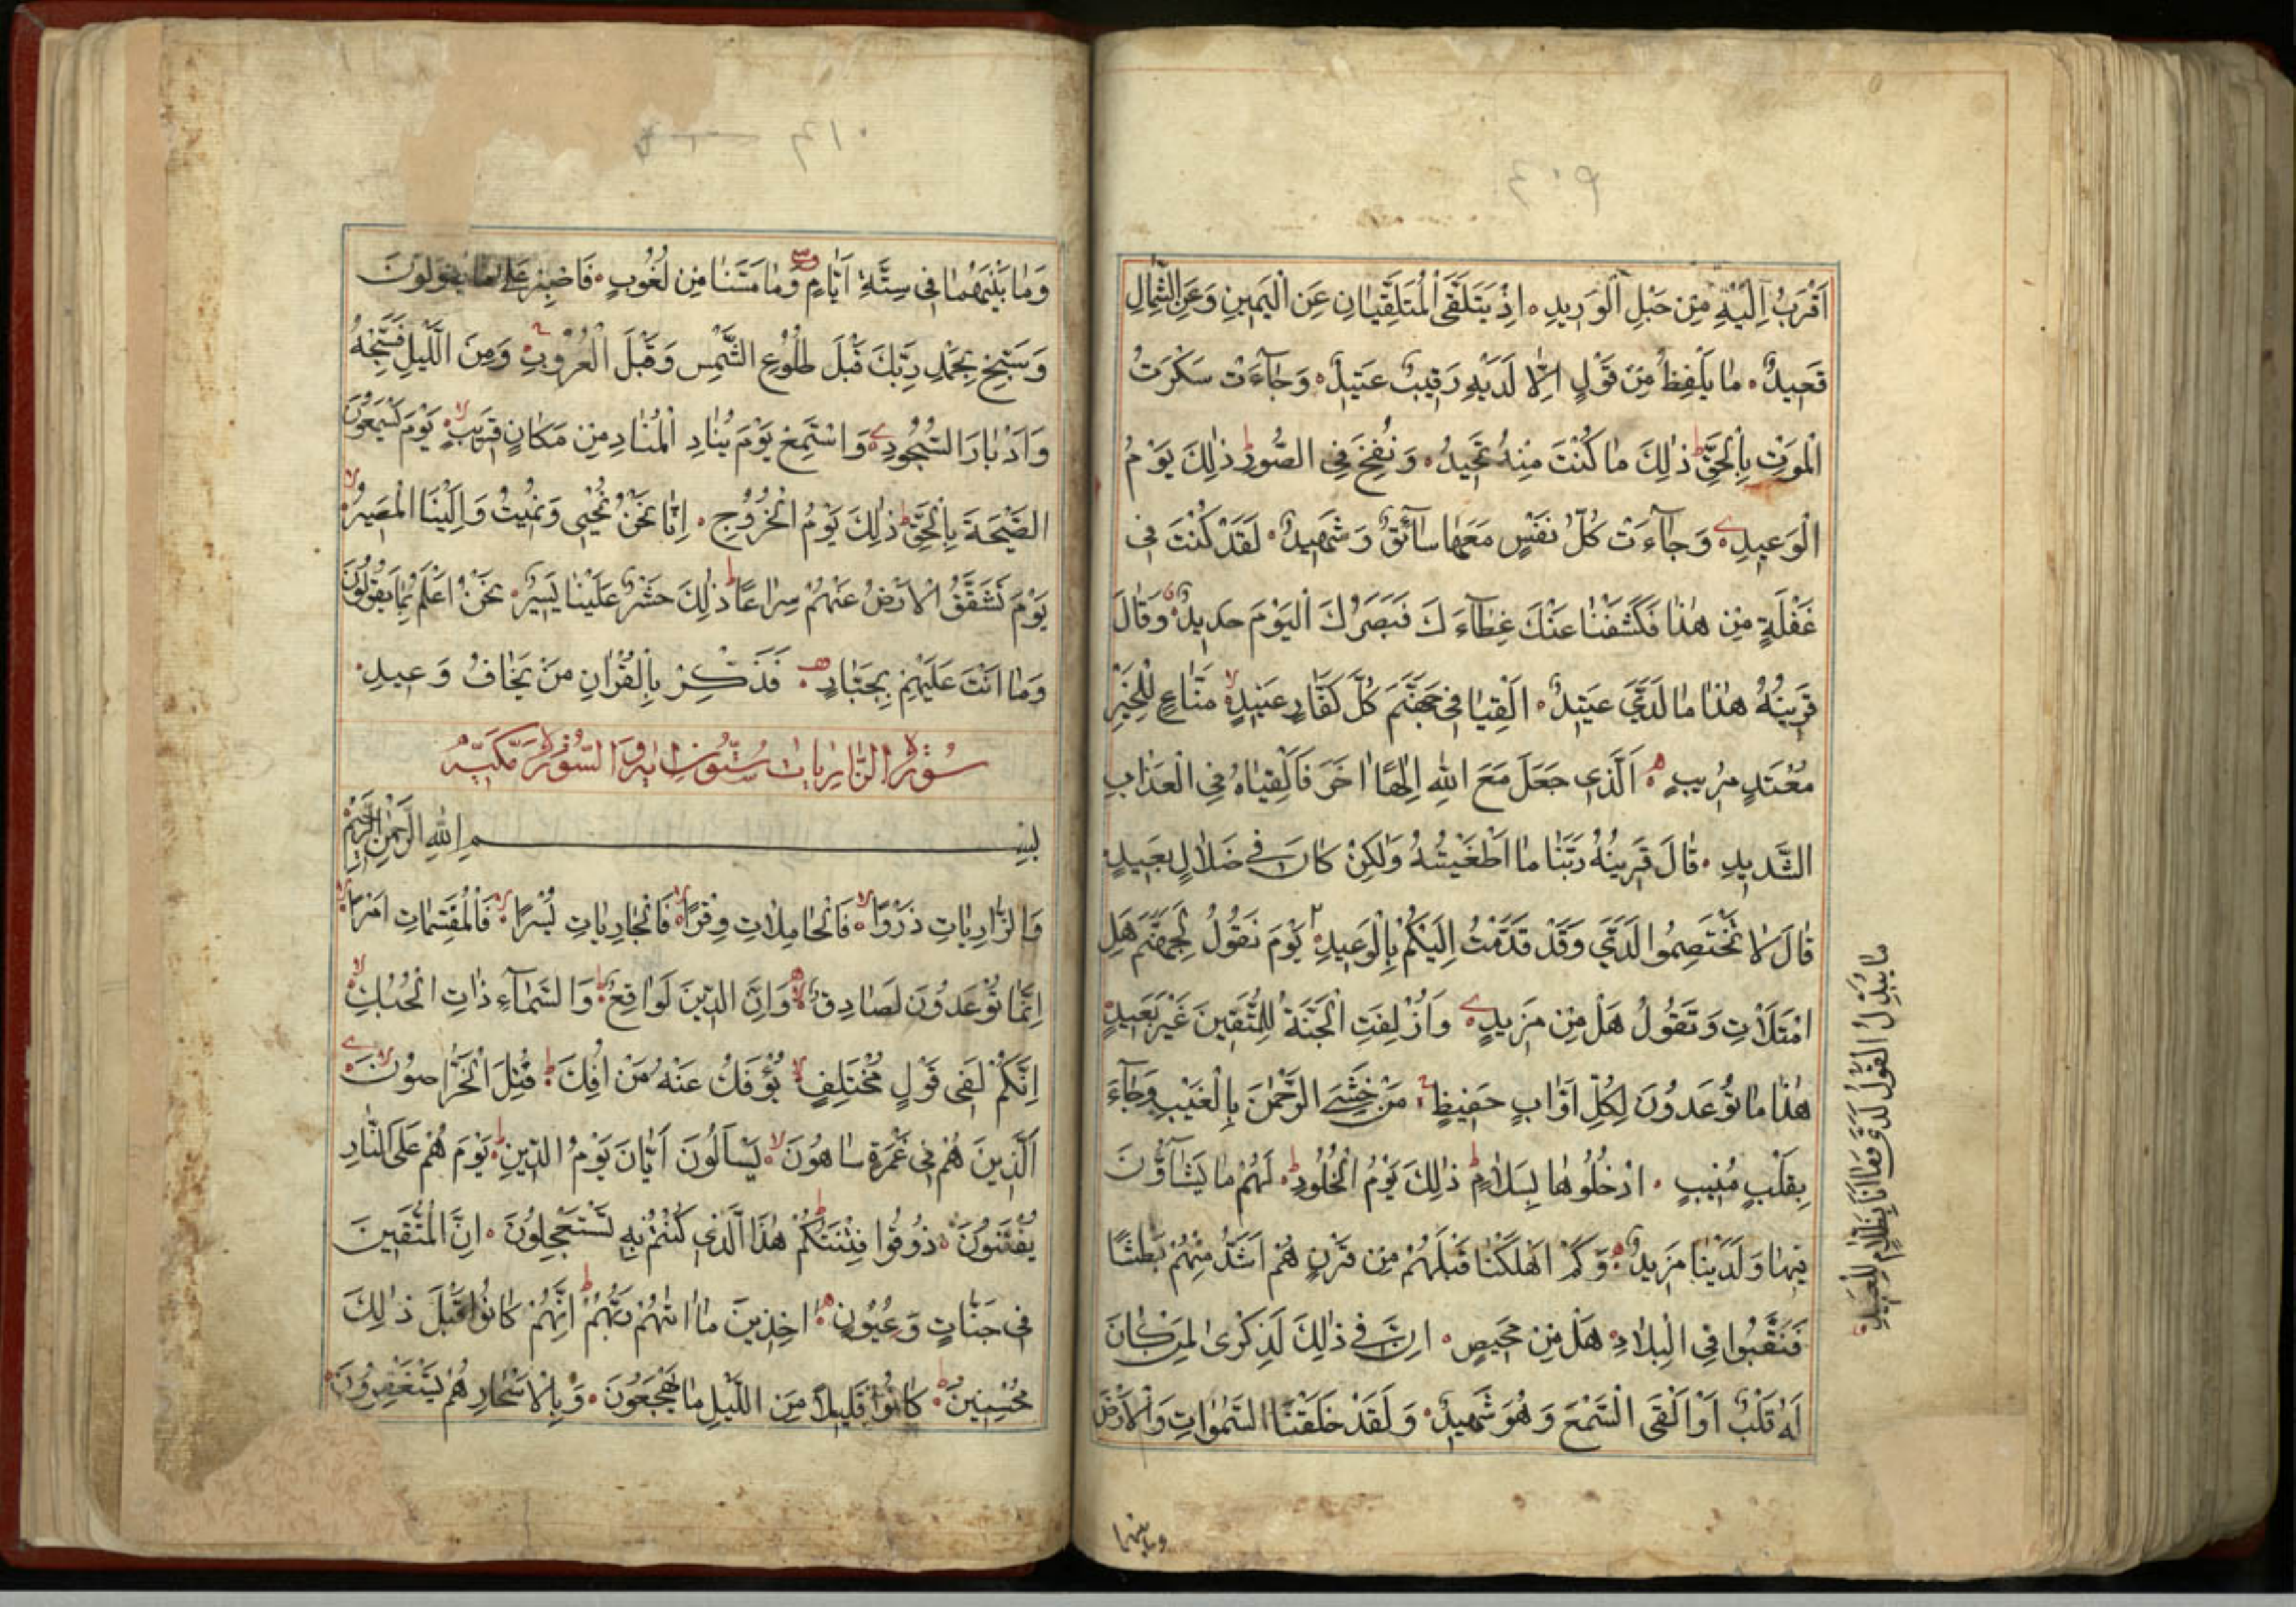 ٤٠٩
اَقْرَبُ اِلَيْهِ مِنْ حَبْلِ الْوَرِيدِ اِذْ يَتَلَقَّى الْمُتَلَقِّيَانِ عَنِ الْيَمِينِ وَعَنِ الشِّمَالِ
قَعِيدٌ مَا يَلْفِظُ مِنْ قَوْلٍ اِلَّا لَدَيْهِ رَقِيبٌ عَتِيدٌ وَجَآءَتْ سَكْرَتُ
الْمَوْتِ بِالْحَقِّ ط ذٰلِكَ مَا كُنْتَ مِنْهُ تَحِيدُ وَنُفِخَ فِى الصُّورِ ط ذٰلِكَ يَوْمُ
الْوَعِيدِ وَجَآءَتْ كُلُّ نَفْسٍ مَعَهَا سَآئِقٌ وَشَهِيدٌ لَقَدْ كُنْتَ فِى
غَفْلَةٍ مِنْ هٰذَا فَكَشَفْنَا عَنْكَ غِطَآءَكَ فَبَصَرُكَ الْيَوْمَ حَدِيدٌ وَقَالَ
قَرِينُهُ هٰذَا مَا لَدَىَّ عَتِيدٌ اَلْقِيَا فِى جَهَنَّمَ كُلَّ كَفَّارٍ عَنِيدٍ لا مَنَّاعٍ لِلْخَيْرِ
مُعْتَدٍ مُرِيبٍ اَلَّذِى جَعَلَ مَعَ اللهِ اِلٰهًا اٰخَرَ فَاَلْقِيَاهُ فِى الْعَذَابِ
الشَّدِيدِ قَالَ قَرِينُهُ رَبَّنَا مَا اَطْغَيْتُهُ وَلٰكِنْ كَانَ فِى ضَلَالٍ بَعِيدٍ
قَالَ لَا تَخْتَصِمُوا لَدَىَّ وَقَدْ قَدَّمْتُ اِلَيْكُمْ بِالْوَعِيدِ يَوْمَ نَقُولُ لِجَهَنَّمَ هَلِ
امْتَلَاْتِ وَتَقُولُ هَلْ مِنْ مَزِيدٍ وَاُزْلِفَتِ الْجَنَّةُ لِلْمُتَّقِينَ غَيْرَ بَعِيدٍ
هٰذَا مَا تُوعَدُونَ لِكُلِّ اَوَّابٍ حَفِيظٍ مَنْ خَشِىَ الرَّحْمٰنَ بِالْغَيْبِ وَجَآءَ
بِقَلْبٍ مُنِيبٍ ادْخُلُوهَا بِسَلَامٍ ط ذٰلِكَ يَوْمُ الْخُلُودِ لَهُمْ مَا يَشَآؤُنَ
فِيهَا وَلَدَيْنَا مَزِيدٌ وَكَمْ اَهْلَكْنَا قَبْلَهُمْ مِنْ قَرْنٍ هُمْ اَشَدُّ مِنْهُمْ بَطْشًا
فَنَقَّبُوا فِى الْبِلَادِ هَلْ مِنْ مَحِيصٍ اِنَّ فِى ذٰلِكَ لَذِكْرٰى لِمَنْ كَانَ
لَهُ قَلْبٌ اَوْ اَلْقَى السَّمْعَ وَهُوَ شَهِيدٌ وَلَقَدْ خَلَقْنَا السَّمٰوَاتِ وَالْاَرْضَ
وما بينهما
مَا يُبَدَّلُ الْقَوْلُ لَدَىَّ وَمَا اَنَا بِظَلَّامٍ لِلْعَبِيدِ
٤١٠
وَمَا بَيْنَهُمَا فِى سِتَّةِ اَيَّامٍ وَمَا مَسَّنَا مِنْ لُغُوبٍ فَاصْبِرْ عَلٰى مَا يَقُولُونَ
وَسَبِّحْ بِحَمْدِ رَبِّكَ قَبْلَ طُلُوعِ الشَّمْسِ وَقَبْلَ الْغُرُوبِ وَمِنَ الَّيْلِ فَسَبِّحْهُ
وَاَدْبَارَ السُّجُودِ وَاسْتَمِعْ يَوْمَ يُنَادِ الْمُنَادِ مِنْ مَكَانٍ قَرِيبٍ لا يَوْمَ يَسْمَعُونَ
الصَّيْحَةَ بِالْحَقِّ ط ذٰلِكَ يَوْمُ الْخُرُوجِ اِنَّا نَحْنُ نُحْيِى وَنُمِيتُ وَاِلَيْنَا الْمَصِيرُ لا
يَوْمَ تَشَقَّقُ الْاَرْضُ عَنْهُمْ سِرَاعًا ط ذٰلِكَ حَشْرٌ عَلَيْنَا يَسِيرٌ نَحْنُ اَعْلَمُ بِمَا يَقُولُونَ
وَمَا اَنْتَ عَلَيْهِمْ بِجَبَّارٍ فَذَكِّرْ بِالْقُرْاٰنِ مَنْ يَخَافُ وَعِيدِ
سُورَةُ الذَّارِيَاتِ سِتُّونَ اٰيَةً السُّورَةُ مَكِّيَّةٌ
بِسْمِ اللهِ الرَّحْمٰنِ الرَّحِيمِ
وَالذَّارِيَاتِ ذَرْوًا لا فَالْحَامِلَاتِ وِقْرًا لا فَالْجَارِيَاتِ يُسْرًا لا فَالْمُقَسِّمَاتِ اَمْرًا لا
اِنَّمَا تُوعَدُونَ لَصَادِقٌ لا وَاِنَّ الدِّينَ لَوَاقِعٌ ط وَالسَّمَآءِ ذَاتِ الْحُبُكِ لا
اِنَّكُمْ لَفِى قَوْلٍ مُخْتَلِفٍ لا يُؤْفَكُ عَنْهُ مَنْ اُفِكَ ط قُتِلَ الْخَرَّاصُونَ لا
اَلَّذِينَ هُمْ فِى غَمْرَةٍ سَاهُونَ لا يَسْاَلُونَ اَيَّانَ يَوْمُ الدِّينِ ط يَوْمَ هُمْ عَلَى النَّارِ
يُفْتَنُونَ ذُوقُوا فِتْنَتَكُمْ ط هٰذَا الَّذِى كُنْتُمْ بِهِ تَسْتَعْجِلُونَ اِنَّ الْمُتَّقِينَ
فِى جَنَّاتٍ وَعُيُونٍ اٰخِذِينَ مَا اٰتٰهُمْ رَبُّهُمْ ط اِنَّهُمْ كَانُوا قَبْلَ ذٰلِكَ
مُحْسِنِينَ ط كَانُوا قَلِيلًا مِنَ اللَّيْلِ مَا يَهْجَعُونَ وَبِالْاَسْحَارِ هُمْ يَسْتَغْفِرُونَ